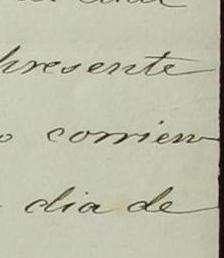 presente
corrien
dia de